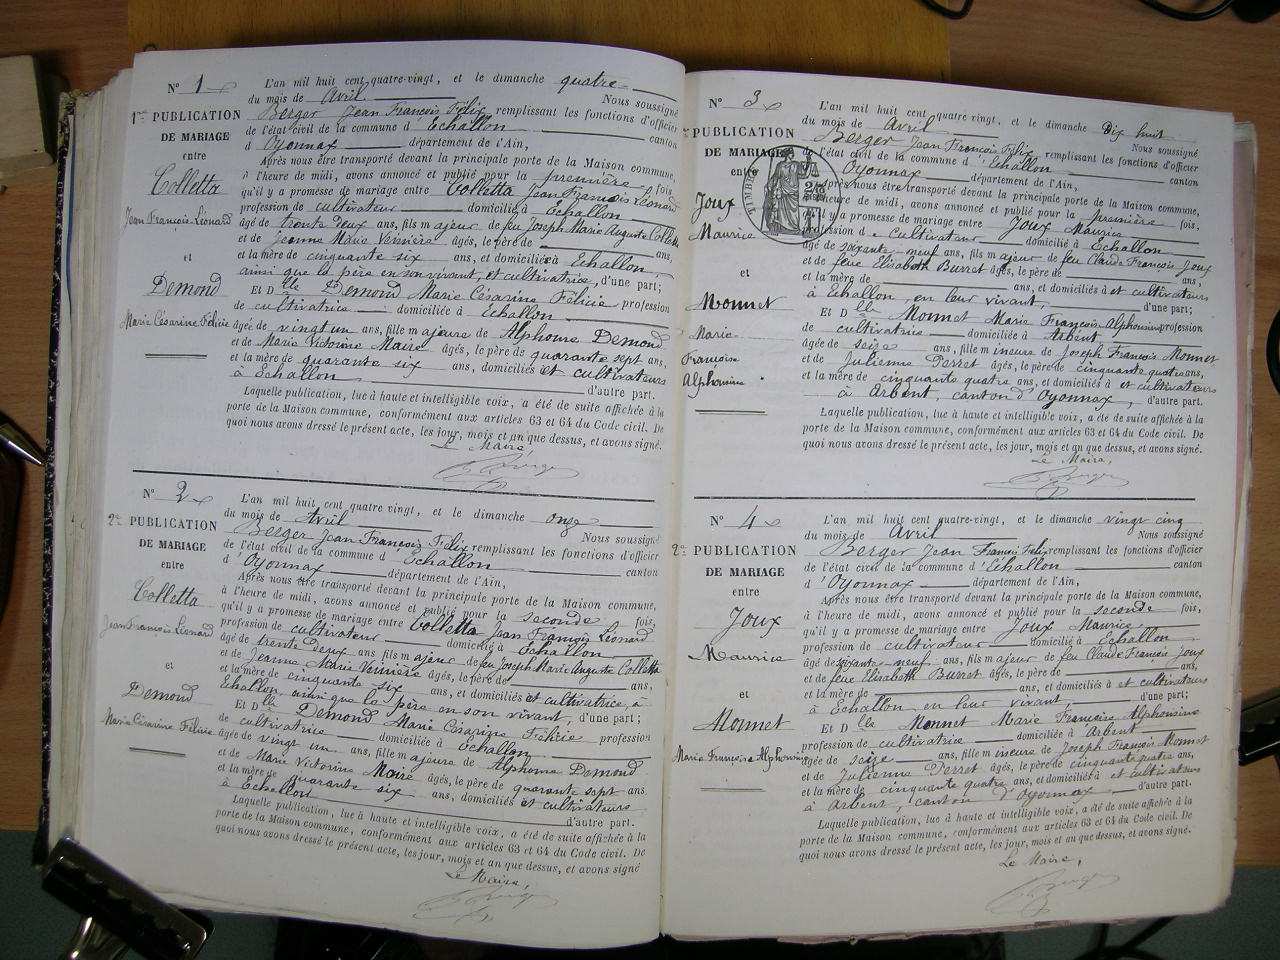 N° 1
1re PUBLICATION
DE MARIAGE
entre
Colletta
Jean François Léonard
et
Demond
Marie Césarine Félicie
L'an mil huit cent quatre-vingt, et le dimanche quatre
du mois de Avril Nous soussigné
Berger Jean François Félix remplissant les fonctions d'officier
de l'état civil de la commune d Echallon canton
d Oyonnax département de l'Ain,
Après nous être transporté devant la principale porte de la Maison commune,
à l'heure de midi, avons annoncé et publié pour la première fois,
qu'il y a promesse de mariage entre Colletta Jean François Léonard
profession de cultivateur domicilié à Echallon
âgé de trente deux ans, fils majeur de feu Joseph Marie Auguste Colletta
et de Jeanne Marie Vernière âgés, le père de ans,
et la mère de cinquante six ans, et domiciliés à Echallon,
ainsi que la père en son vivant, et cultivatrice, d'une part;
Et Dlle Demond Marie Césarine Félicie profession
de cultivatrice domiciliée à Echallon
âgée de vingt un ans, fille majeure de Alphonse Demond
et de Marie Victorine Maire âgés, le père de quarante sept ans,
et la mère de quarante six ans, domiciliés et cultivateurs
à Echallon d'autre part.
Laquelle publication, lue à haute et intelligible voix, a été de suite affichée à la
porte de la Maison commune, conformément aux articles 63 et 64 du Code civil. De
quoi nous avons dressé le présent acte, les jour, mois et an que dessus, et avons signé.
Le Maire,
Berger
N° 2
2e PUBLICATION
DE MARIAGE
entre
Colletta
Jean François Léonard
et
Demond
Marie Césarine Félicie
L'an mil huit cent quatre-vingt, et le dimanche onze
du mois de Avril Nous soussigné
Berger Jean François Félix remplissant les fonctions d'officier
de l'état civil de la commune d Echallon canton
d Oyonnax département de l'Ain,
Après nous être transporté devant la principale porte de la Maison commune,
à l'heure de midi, avons annoncé et publié pour la seconde fois,
qu'il y a promesse de mariage entre Colletta Jean François Léonard
profession de cultivateur domicilié à Echallon
âgé de trente deux ans fils majeur de feu Joseph Marie Auguste Colletta
et de Jeanne Marie Vernière âgés, le père de ans,
et la mère de cinquante six ans, et domiciliés et cultivatrice, à
Echallon, ainsi que la père en son vivant, d'une part;
Et Dlle Demond Marie Césarine Félicie profession
de cultivatrice domiciliée à Echallon
âgée de vingt un ans, fille majeure de Alphonse Demond
et de Marie Victorine Maire âgés, le père de quarante sept ans
et la mère de quarante six ans, domiciliés et cultivateurs
à Echallon d'autre part.
Laquelle publication, lue à haute et intelligible voix, a été de suite affichée à la
porte de la Maison commune, conformément aux articles 63 et 64 du Code civil. De
quoi nous avons dressé le présent acte, les jour, mois et an que dessus, et avons signé
Le Maire,
Berger
N° 3
PUBLICATION
DE MARIAGE
entre
Joux
Maurice
et
Monnet
Marie
Françoise
Alphonsine
TIMBRE
L'an mil huit cent quatre vingt, et le dimanche Dix huit
du mois de Avril Nous soussigné
Berger Jean François Félix remplissant les fonctions d'officier
de l'état civil de la commune d'Echallon canton
Oyonnax département de l'Ain,
Après nous être transporté devant la principale porte de la Maison commune,
heure de midi, avons annoncé et publié pour la première fois,
qu'il y a promesse de mariage entre Joux Maurice
profession de cultivateur domicilié à Echallon
âgé de soixante neuf ans, fils majeur de feu Claude François Joux
et de feue Elisabeth Burret âgés, le père de ans,
et la mère de ans, et domiciliés à et cultivateurs
à Echallon, en leur vivant, d'une part;
Et Dlle Monnet Marie François Alphonsine profession
de cultivatrice domiciliée à Arbent
âgée de seize ans, fille mineure de Joseph François Monnet
et de Julienne Perret âgés, le père de cinquante quatre ans,
et la mère de cinquante quatre ans, et domiciliés à et cultivateurs
à Arbent, canton d'Oyonnax, d'autre part.
Laquelle publication, lue à haute et intelligible voix, a été de suite affichée à la
porte de la Maison commune, conformément aux articles 63 et 64 du Code civil. De
quoi nous avons dressé le présent acte, les jour, mois et an que dessus, et avons signé.
Le Maire,
Berger
N° 4
2e PUBLICATION
DE MARIAGE
entre
Joux
Maurice
et
Monnet
Marie Françoise Alphonsine
L'an mil huit cent quatre-vingt, et le dimanche vingt cinq
du mois de Avril Nous soussigné
Berger Jean François Félix remplissant les fonctions d'officier
de l'état civil de la commune d'Echallon canton
d'Oyonnax département de l'Ain,
Après nous être transporté devant la principale porte de la Maison commune,
à l'heure de midi, avons annoncé et publié pour la seconde fois,
qu'il y a promesse de mariage entre Joux Maurice
profession de cultivateur domicilié à Echallon
âgé de soixante-neuf ans, fils majeur de feu Claude François Joux
et de feue Elisabeth Burret âgés, le père de ans,
et la mère de ans, et domiciliés à et cultivateurs
à Echallon en leur vivant, d'une part;
Et Dlle Monnet Marie Françoise Alphonsine
profession de cultivatrice domiciliée à Arbent
âgée de seize ans, fille mineure de Joseph François Monnet
et de Julienne Perret âgés, le père de cinquante quatre ans,
et la mère de cinquante quatre ans, et domiciliés à et cultivateurs
à Arbent, canton d'Oyonnax d'autre part.
Laquelle publication, lue à haute et intelligible voix, a été de suite affichée à la
porte de la Maison commune, conformément aux articles 63 et 64 du Code civil. De
quoi nous avons dressé le présent acte, les jour, mois et an que dessus, et avons signé.
Le Maire,
Berger